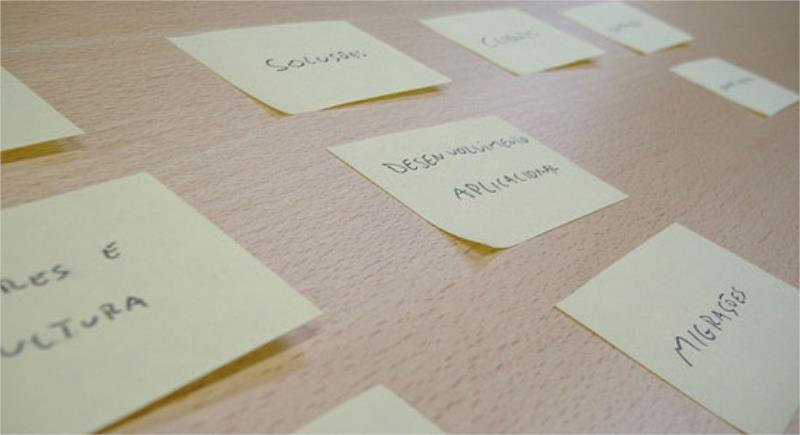 SOLUÇÕES
DESENVOLVIMENTO
APLICACIONAL
RES E
ULTURA
MIGRAÇÕES